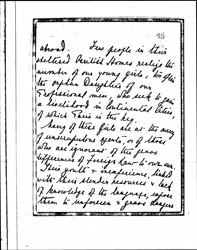 95
abroad. Few people in their
sheltered British Homes realize the
number of our young girls, too often
the orphan Daughters of our
Professional men, who seek to gain
a livelihood in Continental Cities,
of which Paris is the key.
Many of these Girls are at the mercy
of unscrupulous agents, or of those
who are ignorant of the grave
differences of Foreign Law to our own.
Their youth & inexperience, linked
with their slender resources & lack
of knowledge of the language, expose
them to unforeseen & grave dangers